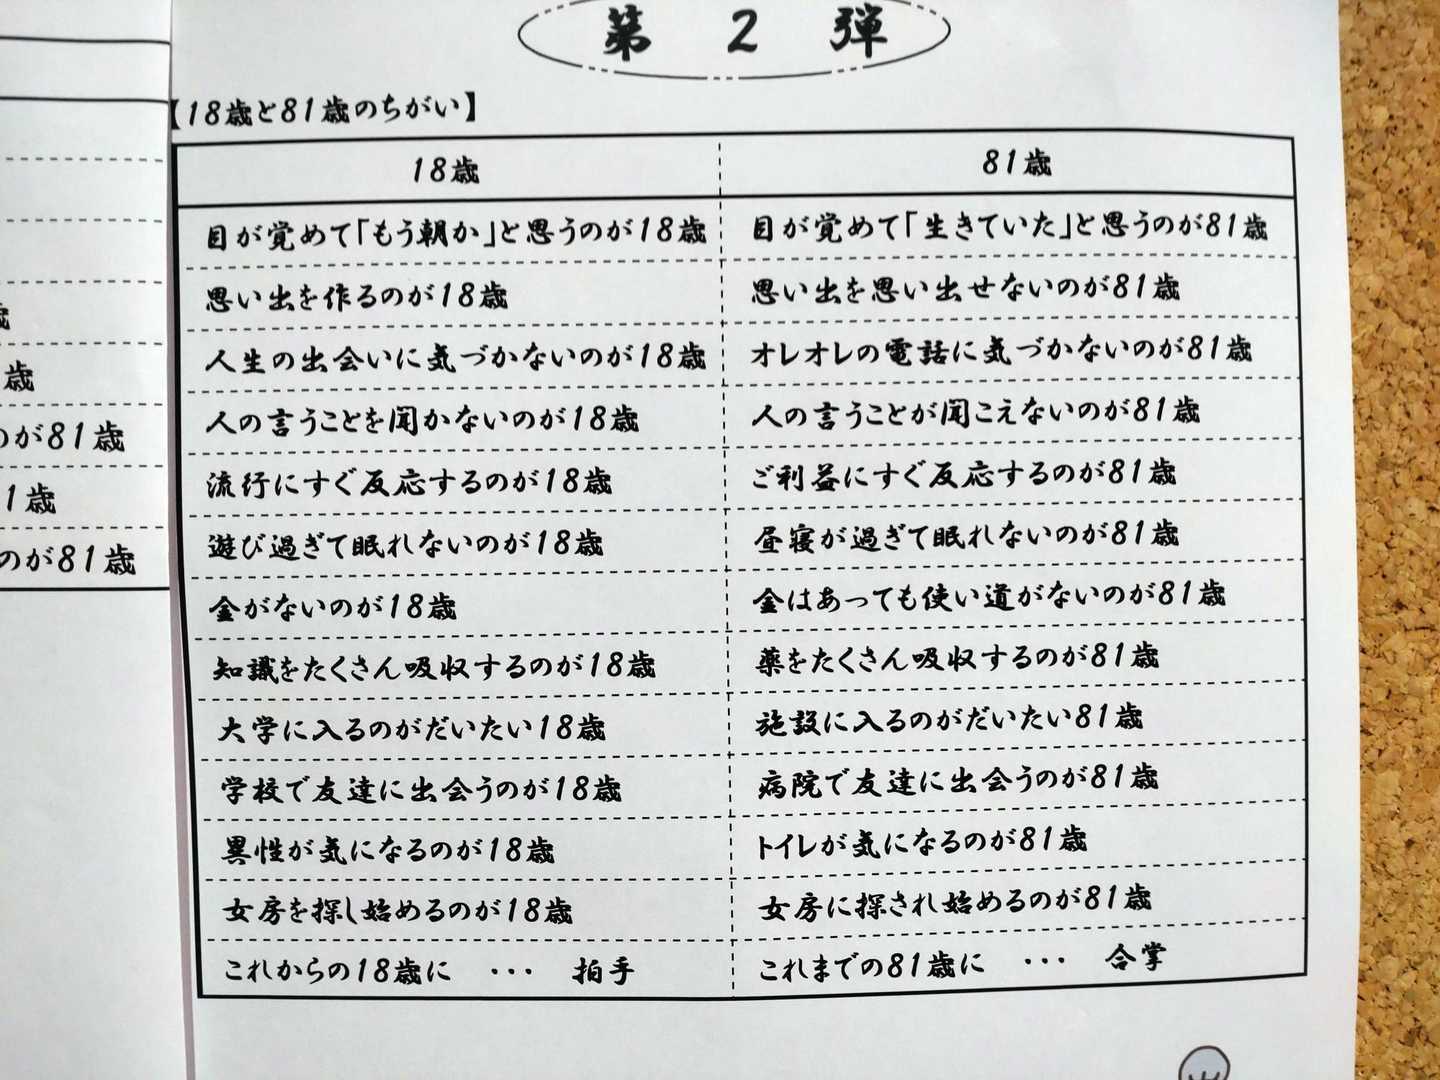 第２弾
【18歳と81歳のちがい】
18歳 81歳
目が覚めて「もう朝か」と思うのが18歳 目が覚めて「生きていた」と思うのが81歳
思い出を作るのが18歳 思い出を思い出せないのが81歳
人生の出会いに気づかないのが18歳 オレオレの電話に気づかないのが81歳
人の言うことを聞かないのが18歳 人の言うことが聞こえないのが81歳
流行にすぐ反応するのが18歳 ご利益にすぐ反応するのが81歳
遊び過ぎて眠れないのが18歳 昼寝が過ぎて眠れないのが81歳
金がないのが18歳 金はあっても使い道がないのが81歳
知識をたくさん吸収するのが18歳 薬をたくさん吸収するのが81歳
大学に入るのがだいたい18歳 施設に入るのがだいたい81歳
学校で友達に出会うのが18歳 病院で友達に出会うのが81歳
異性が気になるのが18歳 トイレが気になるのが81歳
女房を探し始めるのが18歳 女房に探され始めるのが81歳
これからの18歳に ･･･ 拍手 これまでの81歳に ･･･ 合掌
歳
歳
のが81歳
1歳
のが81歳